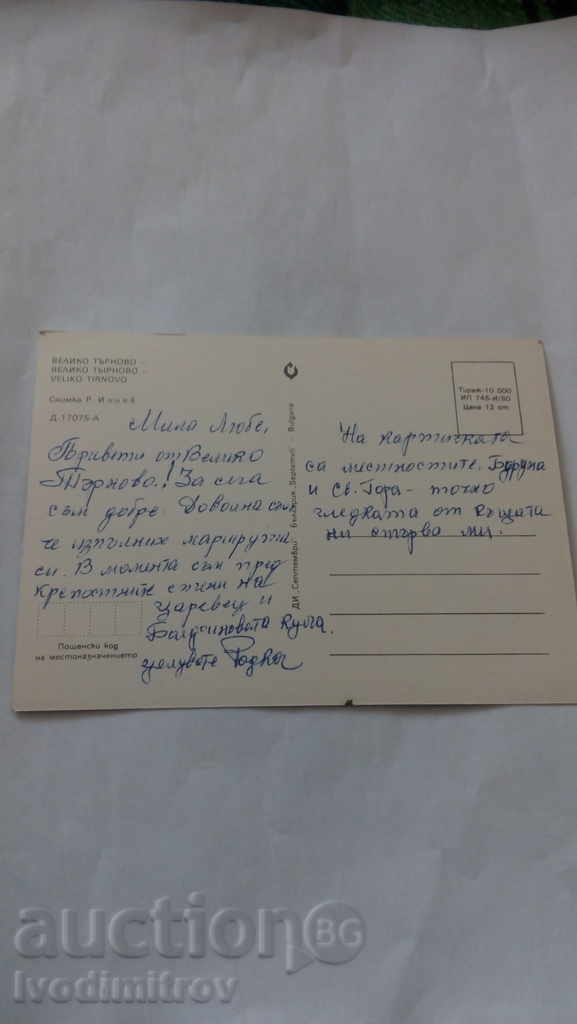 ВЕЛИКО ТЪРНОВО –
ВЕЛИКО ТЫРНОВО –
VELIKO TIRNOVO
Снимка Р. И
Д-17075-А
Мила Любе,
Привети от Велико
Търново! За сега
съм добре. Доволна съм
че изпълних маршрута
си. В момента съм пред
крепостните стени на
Царевец и
Балдуиновата кула.
целувате Радка
Пощенски код
на местоназначението
ДИ „Септември“ България „Septemvri“ Bulgaria
Тираж-10 000
ИП 745-И/80
Цена 12 ст
На картичката
са местностите
и Св. Гора - точно
гледката от къщата
ни
auctionBG
Ivodimitrov